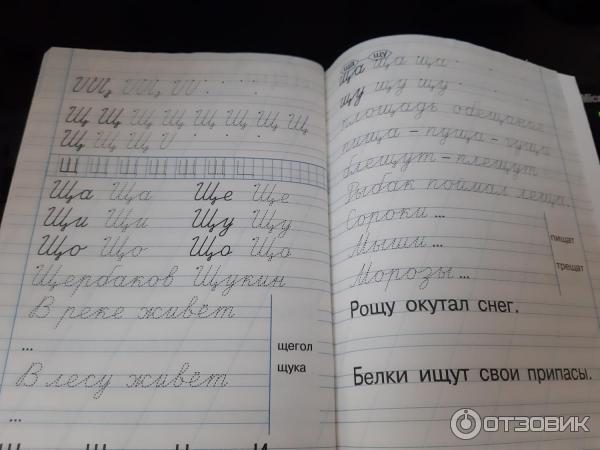 Щ Щ Щ Щ Щ Щ Щ Щ
Щ Щ Щ
Щ Щ Щ Щ Щ Щ Щ
Ща Ща Ще Ще
Щи Щи Щу Щу
Що Що Що Що
Щербаков Щукин
В реке живёт
...
щегол
щука
В лесу живёт
...
ща щу
ща ща ща
щу щу щу
площадь обещание
пища – пуща – чаща
блещут – плещут
Рыбак поймал леща.
Сороки ...
Мыши ...
Морозы ...
пищат
трещат
Рощу окутал снег.
Белки ищут свои припасы.
ОТЗОВИК